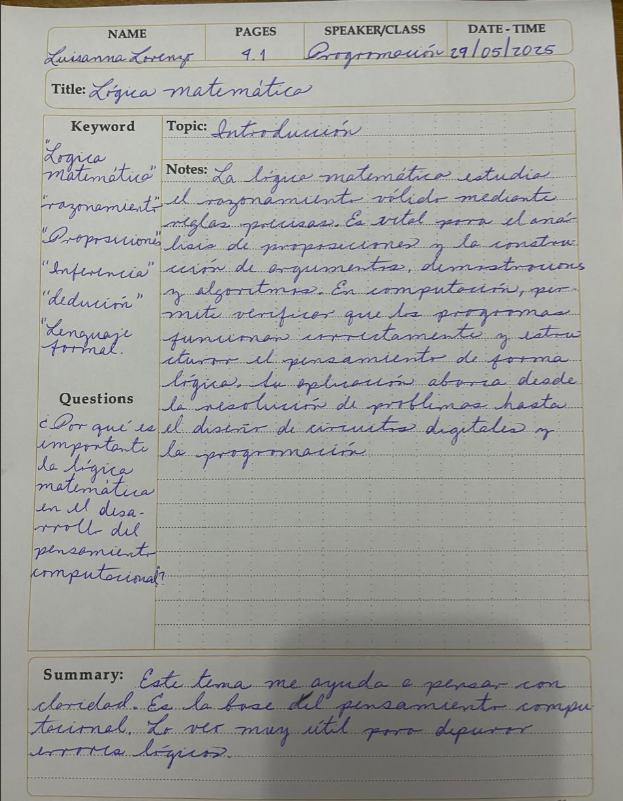 NAME PAGES SPEAKER/CLASS DATE - TIME
Luisanna Lorenzo 4.1 Programación 29/05/2025
Title: Lógica matemática
Keyword
"Logica
matemática"
"razonamiento"
"Proposiciones"
"Inferencia"
"dedución"
"Lenguaje
formal.
Questions
¿Por qué es
importante
la lógica
matemática
en el desa-
rrollo del
pensamiento
computacional?
Topic: Introducción
Notes: La lógica matemática estudia
el razonamiento válido mediante
reglas precisas. Es vital para el aná-
lisis de proposiciones y la constru-
cción de argumentos, demostraciones
y algoritmos. En computación, per-
mite verificar que los programas
funcionan correctamente y estru
cturar el pensamiento de forma
lógica. Su aplicación abarca desde
la resolución de problemas hasta
el diseño de circuitos digitales y
la programación
Summary: Este tema me ayuda a pensar con
claridad. Es la base del pensamiento compu
tacional. Lo veo muy útil para depurar
errores lógicos.